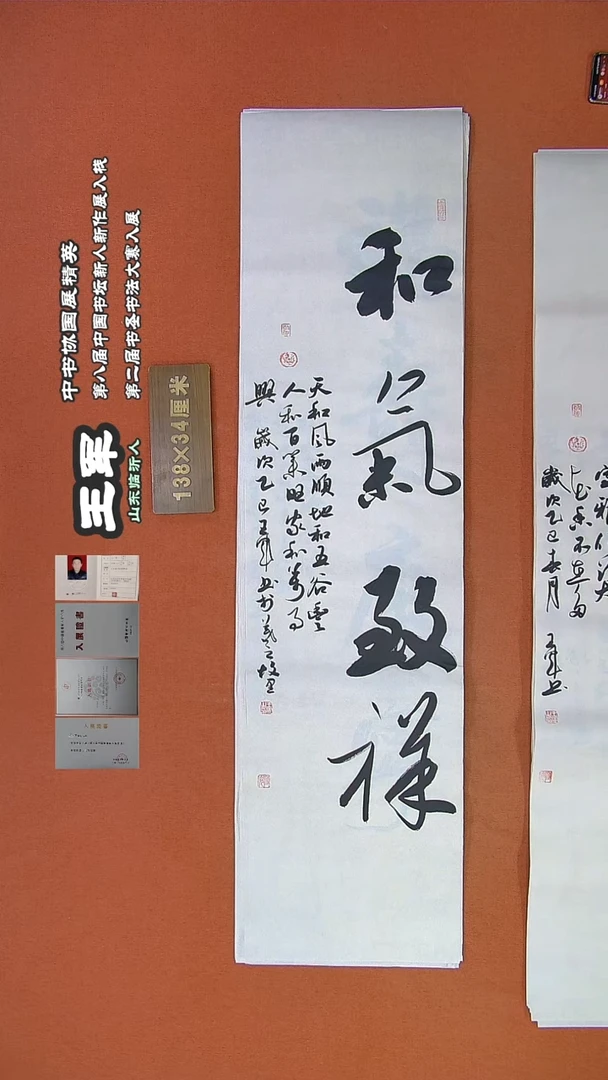 中书协国展精英
第八届中国书坛新人新作展入栈
第二届书圣书法大赛入展
王军
山东临沂人
138×34厘米
和氣致祥
天和风雨順地和五谷豐
人和百業旺家和萬事
興 歲次乙巳王軍书於羲之故里
歲次乙巳春月
王軍书
入展證書